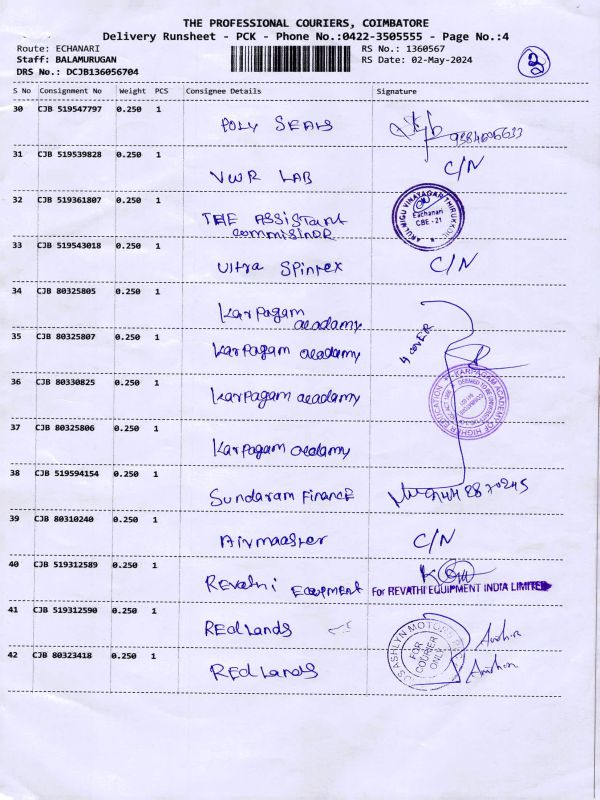 THE PROFESSIONAL COURIERS, COIMBATORE
Delivery Runsheet - PCK - Phone No.:0422-3505555 - Page No.:4
Route: ECHANARI
Staff: BALAMURUGAN
DRS No.: DCJB136056704
RS No.: 1360567
RS Date: 02-May-2024
2
S No Consignment No Weight PCS Consignee Details Signature
30 CJB 519547797 0.250 1 POLY SEALS
31 CJB 519539828 0.250 1 VWR LAB C/N
32 CJB 519361807 0.250 1 THE ASSistant
commisinOR
Eachanari
CBE - 21
33 CJB 519543018 0.250 1 Ultra Spintex C/N
34 CJB 80325805 0.250 1 Karpagam
acadamy
4 COVER
35 CJB 80325807 0.250 1 Karpagam acadamy
36 CJB 80330825 0.250 1 Karpagam acadamy
KARPAGAM ACADEMY OF HIGHER EDUCATION
37 CJB 80325806 0.250 1 Karpagam acadamy
38 CJB 519594154 0.250 1 Sundaram FinancE
39 CJB 80310240 0.250 1 Airmaaster C/N
40 CJB 519312589 0.250 1 REvathi EQUPMENT For REVATHI EQUIPMENT INDIA LIMITED
41 CJB 519312590 0.250 1 REdLands
ASHLYN MOTORS
FOR
COURIER
ONLY
42 CJB 80323418 0.250 1 REdLands